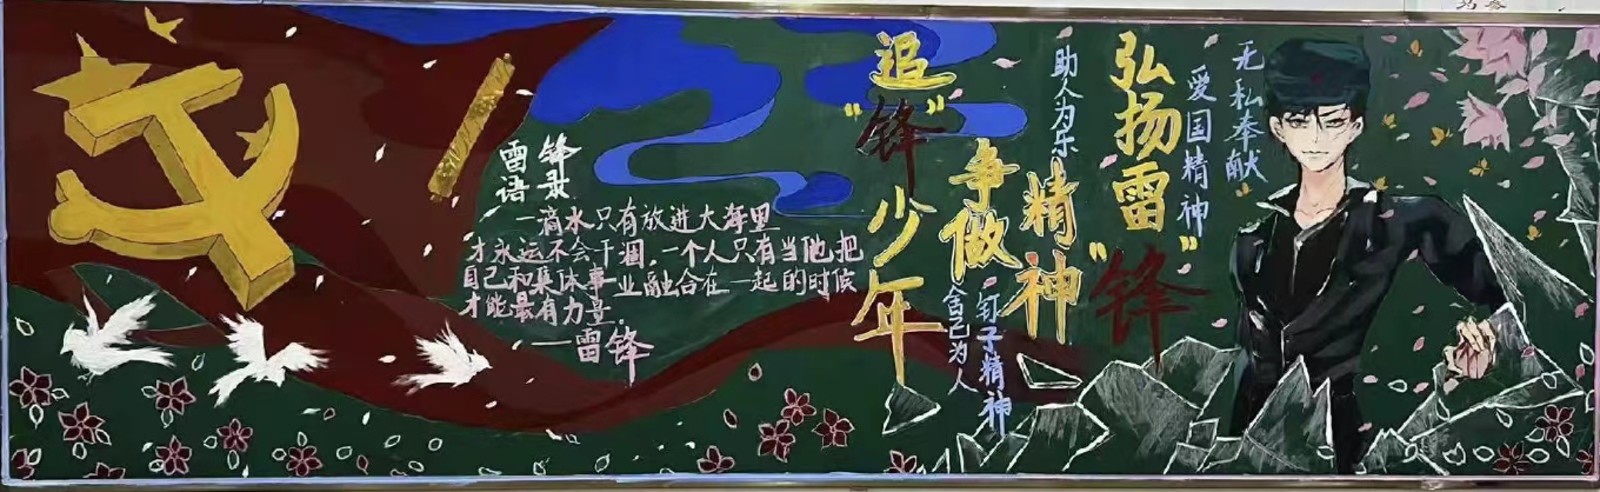 雷锋
语录
一滴水只有放进大海里
才永远不会干涸,一个人只有当他把
自己和集体事业融合在一起的时候
才能最有力量。
——雷锋
无私奉献
爱国精神
弘扬雷“锋”
精神
助人为乐
争做
追“锋”少年
钉子精神
舍己为人